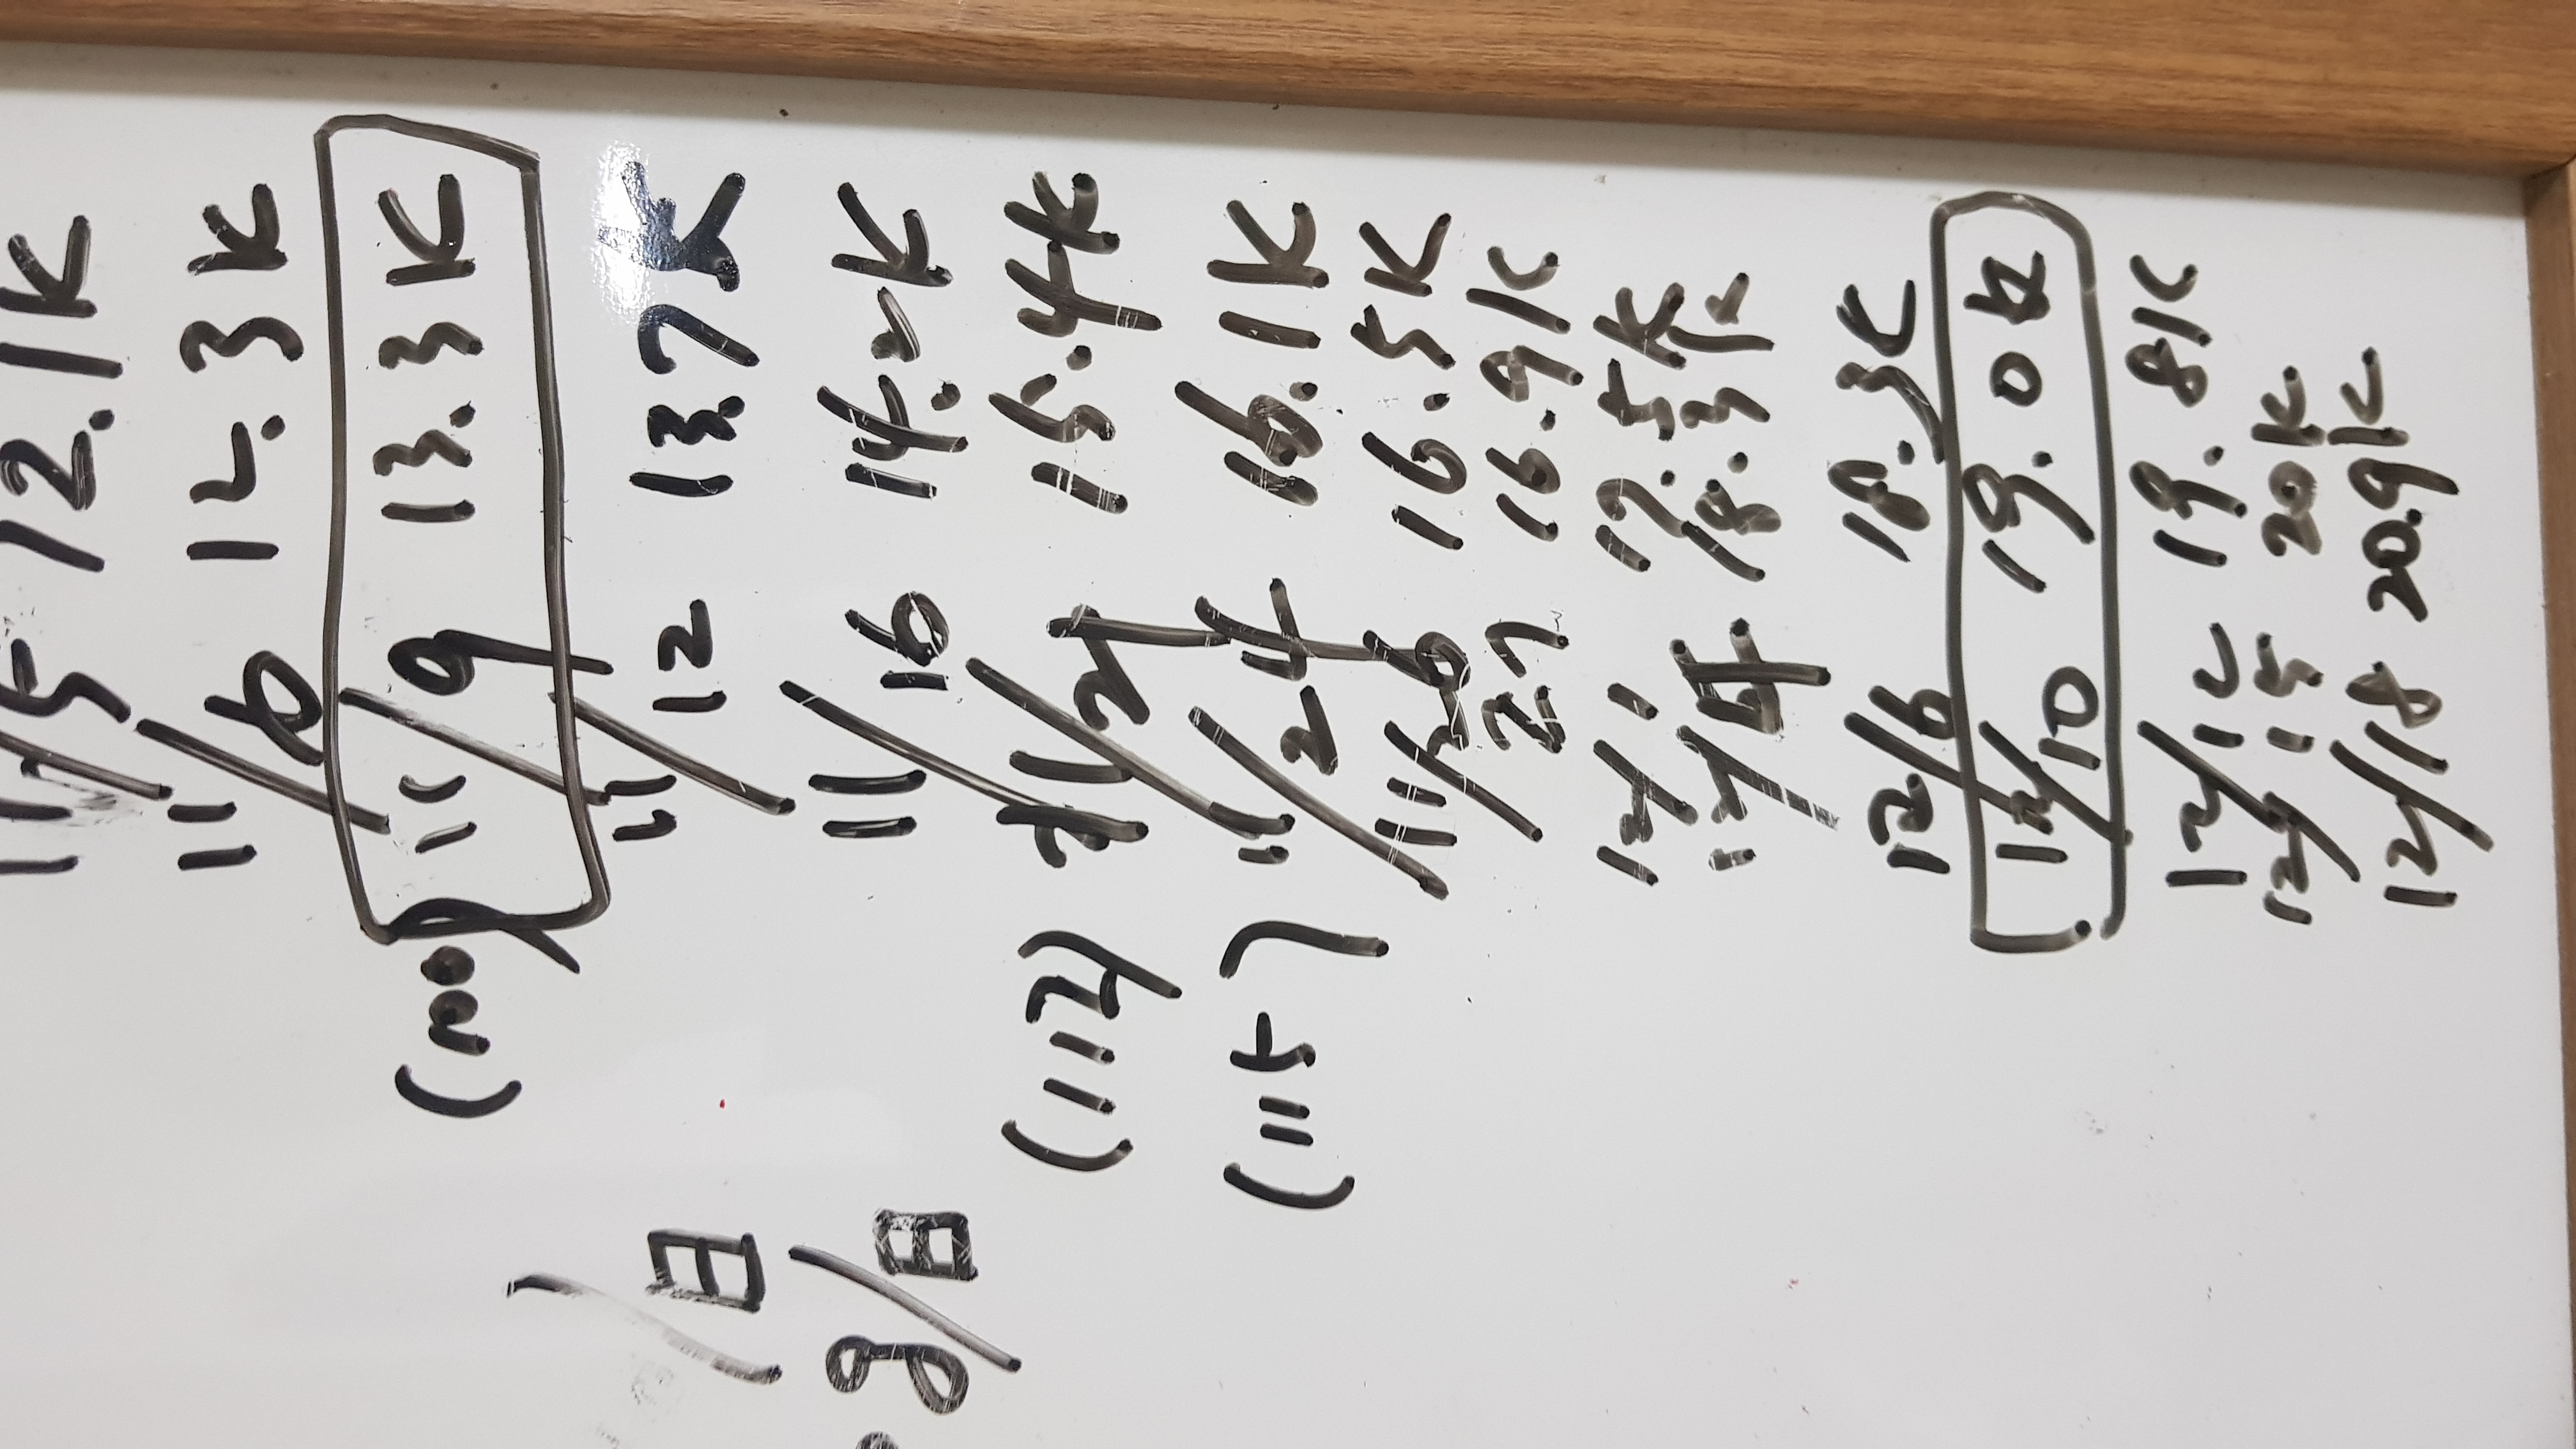 11/5 12.1K
11/6 12.3K
(100) 11/9 13.3K
11/12 13.7K
/日
11/16 14.2K
g/日
(112) 11/21 15.4K
(115) 11/24 16.1K
11/26 16.5K
27 16.9K
12/1 17.5K
12/4 18.3K
12/6 18.3K
12/10 19.0K
12/12 19.8K
12/15 20K
12/18 20.9K